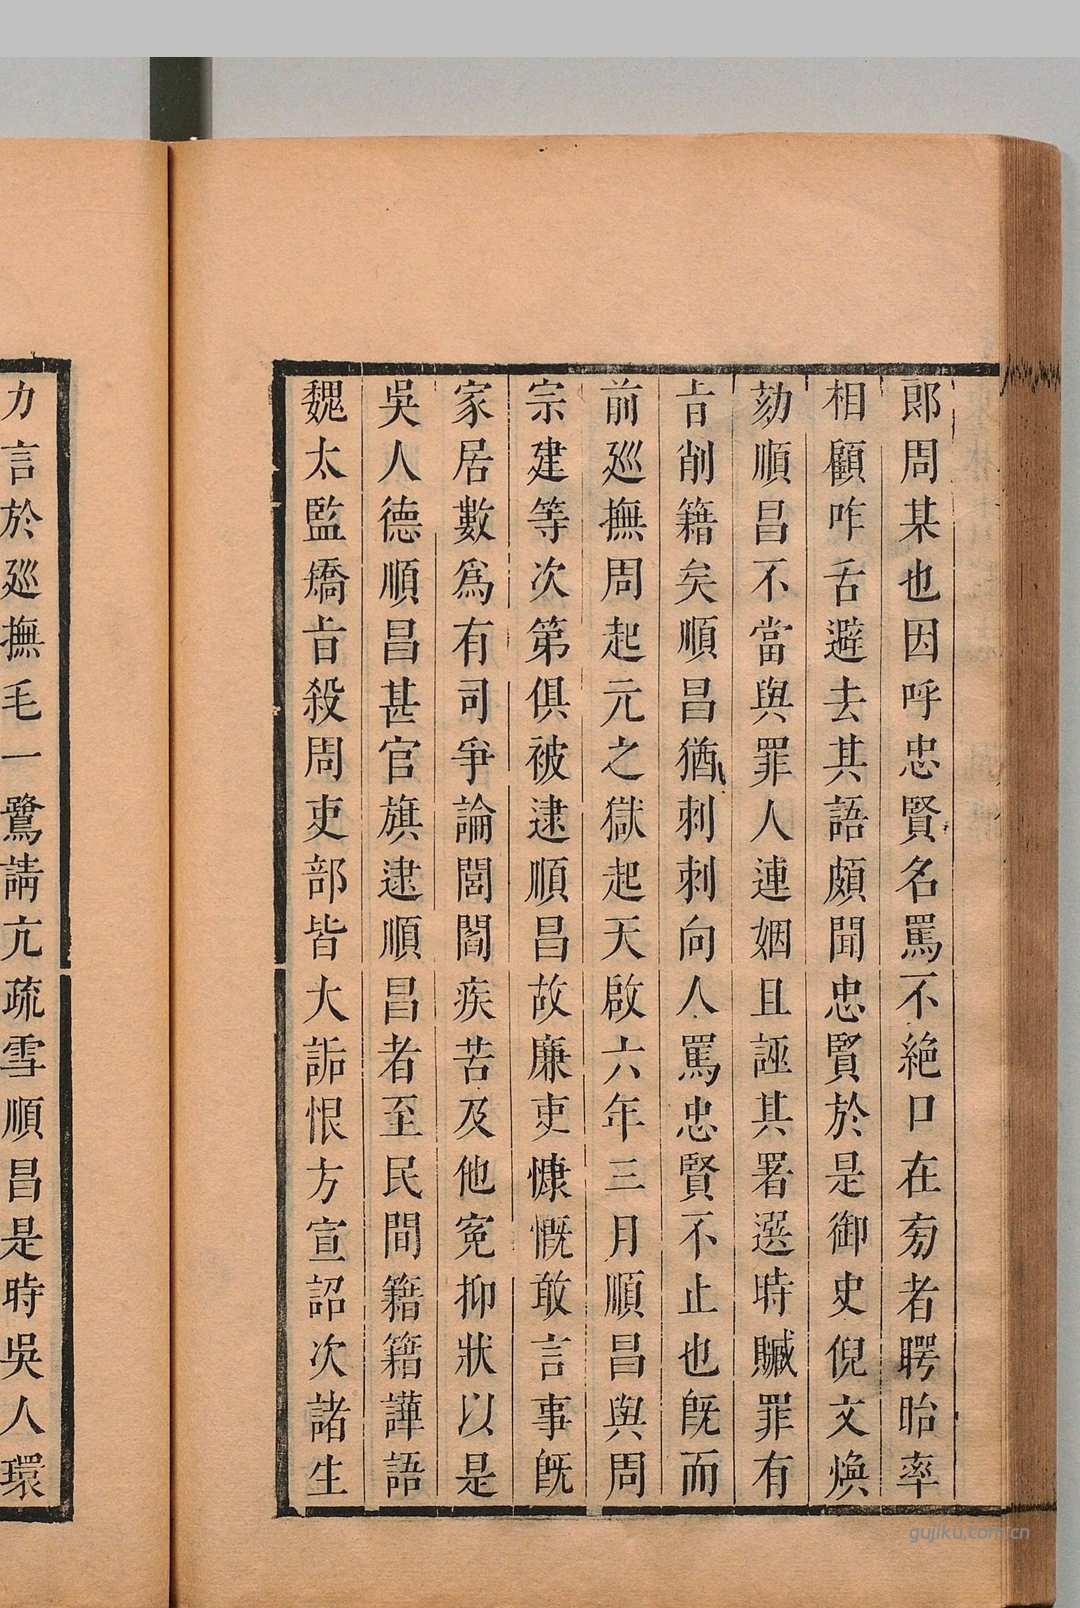 郎周某也因呼忠賢名罵不絶口在旁者聹眙率
相顧咋舌避去其語頗聞忠賢於是御史倪文煥
劾順昌不當與罪人連姻且誣其署選時贓罪有
㫖削籍矣順昌猶刺刺向人罵忠賢不止也旣而
前廵撫周起元之獄起天啟六年三月順昌與周
宗建等次第俱被逮順昌故廉吏慷慨敢言事旣
家居數爲有司爭論閭閻疾苦及他寃抑狀以是
吳人德順昌甚官旗逮順昌者至民間籍籍譁語
魏太監矯㫖殺周吏部皆大詬恨方宣詔次諸生
力言於廵撫毛一鷺請亢疏雪順昌是時吳人環
gujiku.com.cn